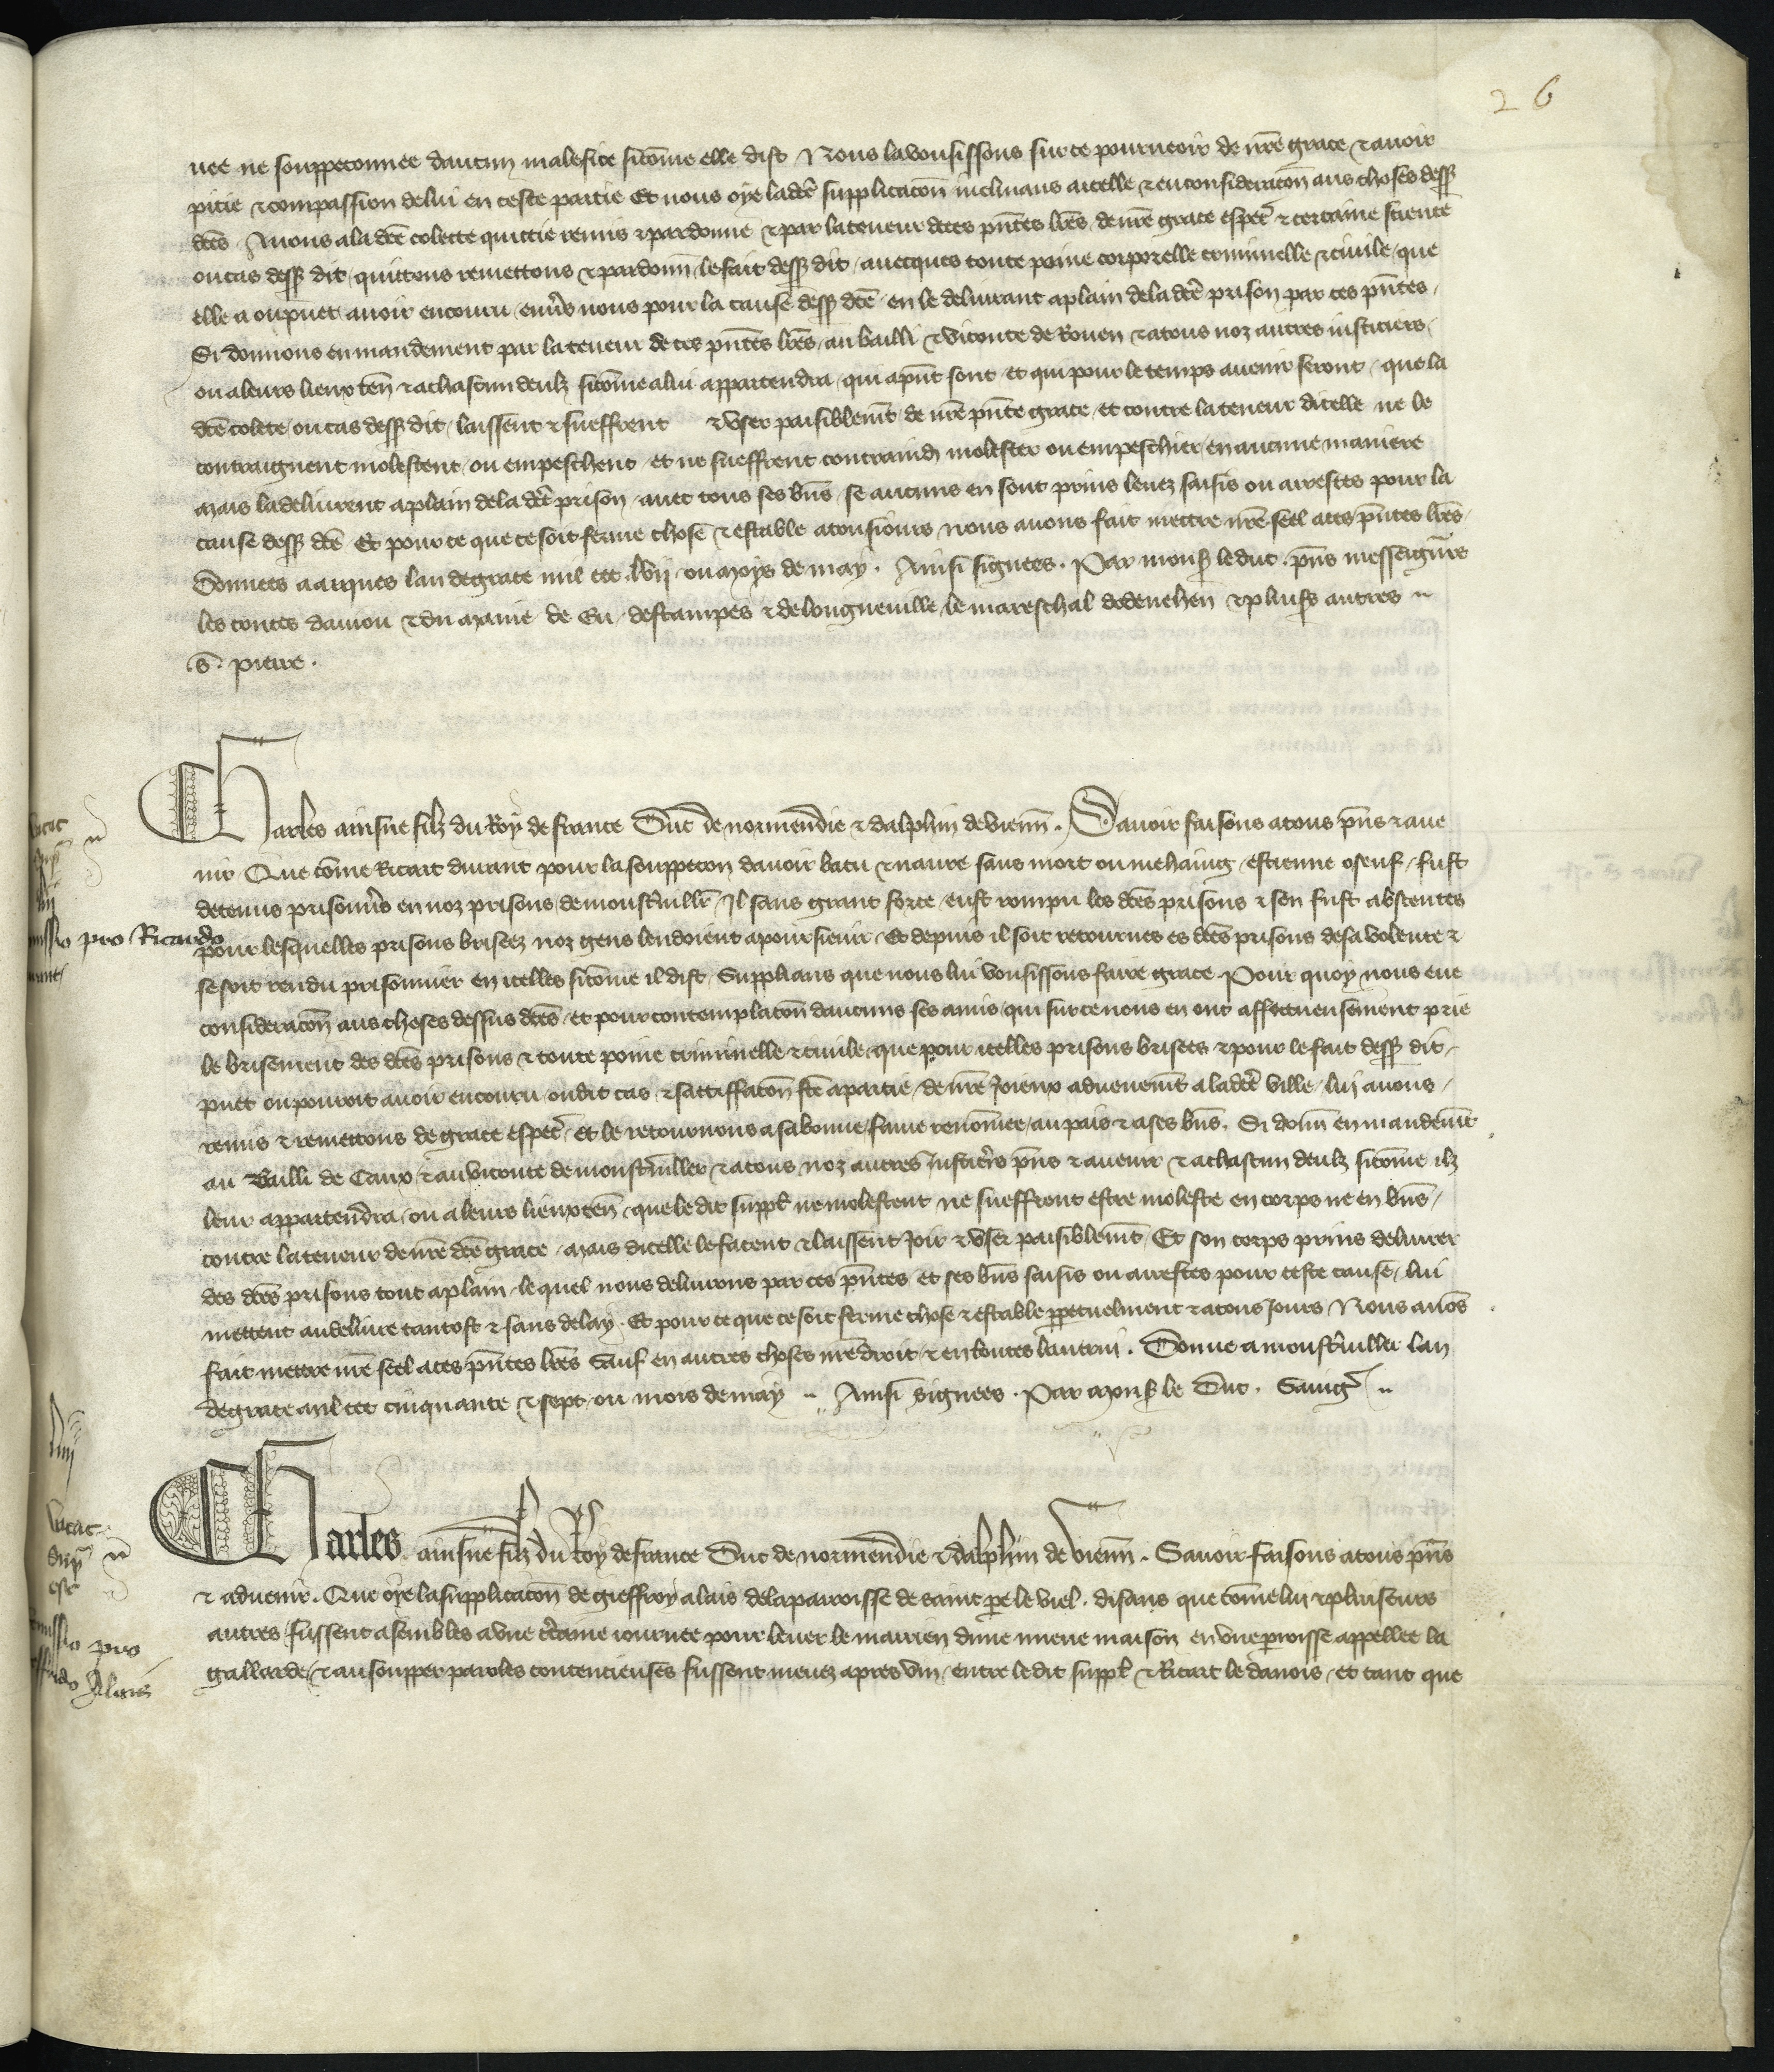 26
uee ne souppeconnee daucun malefice sicõme elle dist Nous la vousissons sur ce pourveoir de nr̃e grace & avoir
pitie & compassion de lui en ceste partie Et nous oye lad̃ce supplicacõn inclinans a icelle & en consideracõn aus choses dess
dc̃es Avons a la dc̃e colette quictie remis & pardonne & par la teneur de ces pñtes lr̃es de nr̃e grace espec̃ & certaine science
ou cas dess dit quittons remettons & pardonñ le fait dess dit avecques toute poine corporelle criminelle & civile que
elle a ou puet avoir encouru env̾s nous pour la cause dess dc̃e en le delivrant a plain de la dc̃e prison par ces pñtes
Si donnons en mandement par la teneur de ces pñtes lr̃es au bailli & viconte de Rouen & a tous noz autres iusticiers
ou a leurs lieux teñ & a chascun deulz sicõme a lui appartendra qui a pñt sont et qui pour le temps avenir seront que la
dc̃e colete ou cas dess dit laissent & sueffrent & user paisiblemt̃ de nr̃e pñte grace et contre la teneur dicelle ne le
contraignent molestent ou empeschent et ne sueffrent contraind molester ou empeschier en aucune maniere
Mais la delivrent a plain de la dc̃e prison avec tous ses bñs se aucuns en sont prins levez saisis ou arrestes pour la
cause dess dc̃e Et pour ce que ce soit ferme chose & estable a tousiours nous avons fait mettre nr̃e seel a ces pñtes lr̃es
Donnees a arques lan de grace mil ccc lvij ou moys de may. Ainsi signees. Par mons le duc. pñs messeigñrs
les contes daniou & du maine de Eu destampes & de longueville le mareschal dodenehen & plus̾s autres
S. pierre.
Charles ainsne filz du Roy de france Duc de normendie & dalphin de vienñ. Savoir faisons a tous pñs & ave
nir Que cõme Ricart durant pour la souppecon davoir batu & navre sans mort ou mehaing estienne osenf fust
detenus prisonn̾s en noz prisons de monst̾viller Il sans grant force eust rompu les dc̃es prisons & sen fust absentes
pour lesquelles prisons brisees noz gens lendoient a poursievir Et depuis il soit retournes es dc̃es prisons de sa volente &
se soit rendu prisonnier en icelles sicõme il dist Supplians que nous lui vousissons faire grace Pour quoy nous eue
consideracõn aus choses dessus dc̃es et pour contemplacõn daucuns ses amis qui sur ce nous en ont affectueusement prie
le brisement des dc̃es prisons & toute poine criminelle & civile que pour icelles prisons brisees & pour le fait dess dit
puet ou pourroit avoir encouru ou dit cas & sattiffacõn fc̃e a partie de nr̃e Joieux advenemt̃ a la dc̃e ville lui avons
remis & remettons de grace espec̃ et le retournons a sa bonne fame renõmee au pais & a ses bñs. Si donñ en mandemt̃
au Bailli de Caux & au viconte de monst̾viller & a tous noz autres Justic̾s pñs & avenir & a chascun deulz sicõme ilz
leur appartendra ou a leurs lieux teñ que le dit suppl̃ ne molestent ne sueffront estre moleste en corps ne en bñs
contre la teneur de nr̃e dc̃e grace mais dicelle le facent & laissent Joir & user paisiblemt̃ Et son corps prins delivrer
des dc̃es prisons tout a plain le quel nous delivrons par ces pñtes et ses bñs saisis ou arrestes pour ceste cause lui
mettent au delivre tantost & sans delay. Et pour ce que ce soit ferme chose & estable perpetuelment & a tous Jours Nous avõs
fait mettre nr̃e seel a ces pñtes lr̃es Sauf en autres choses nr̃e droit & en toutes lautrui. Donne a monst̾viller lan
de grace mil ccc cinquante & sept ou mois de may Ainsi signees. Par mons le Duc. Savig̃
Charles ainsne filz du Roy de france Duc de normendie & dalphin de vienñ. Savoir faisons a tous pñs
& advenir. Que oye la supplicacõn de gieffroy alais de la parroisse de saint pe le viel. disans que cõme lui & pluiseurs
autres fussent asembles a une c̾taine iournee pour lever le mairien dune nueve maison en une pparoisse appellee la
gaillarde & au soupper paroles contencieuses fussent meuez apres vin entre le dit suppl̃ & Ricart le danois et tant que
pro Ricardo
vacat
est
pro
Alais